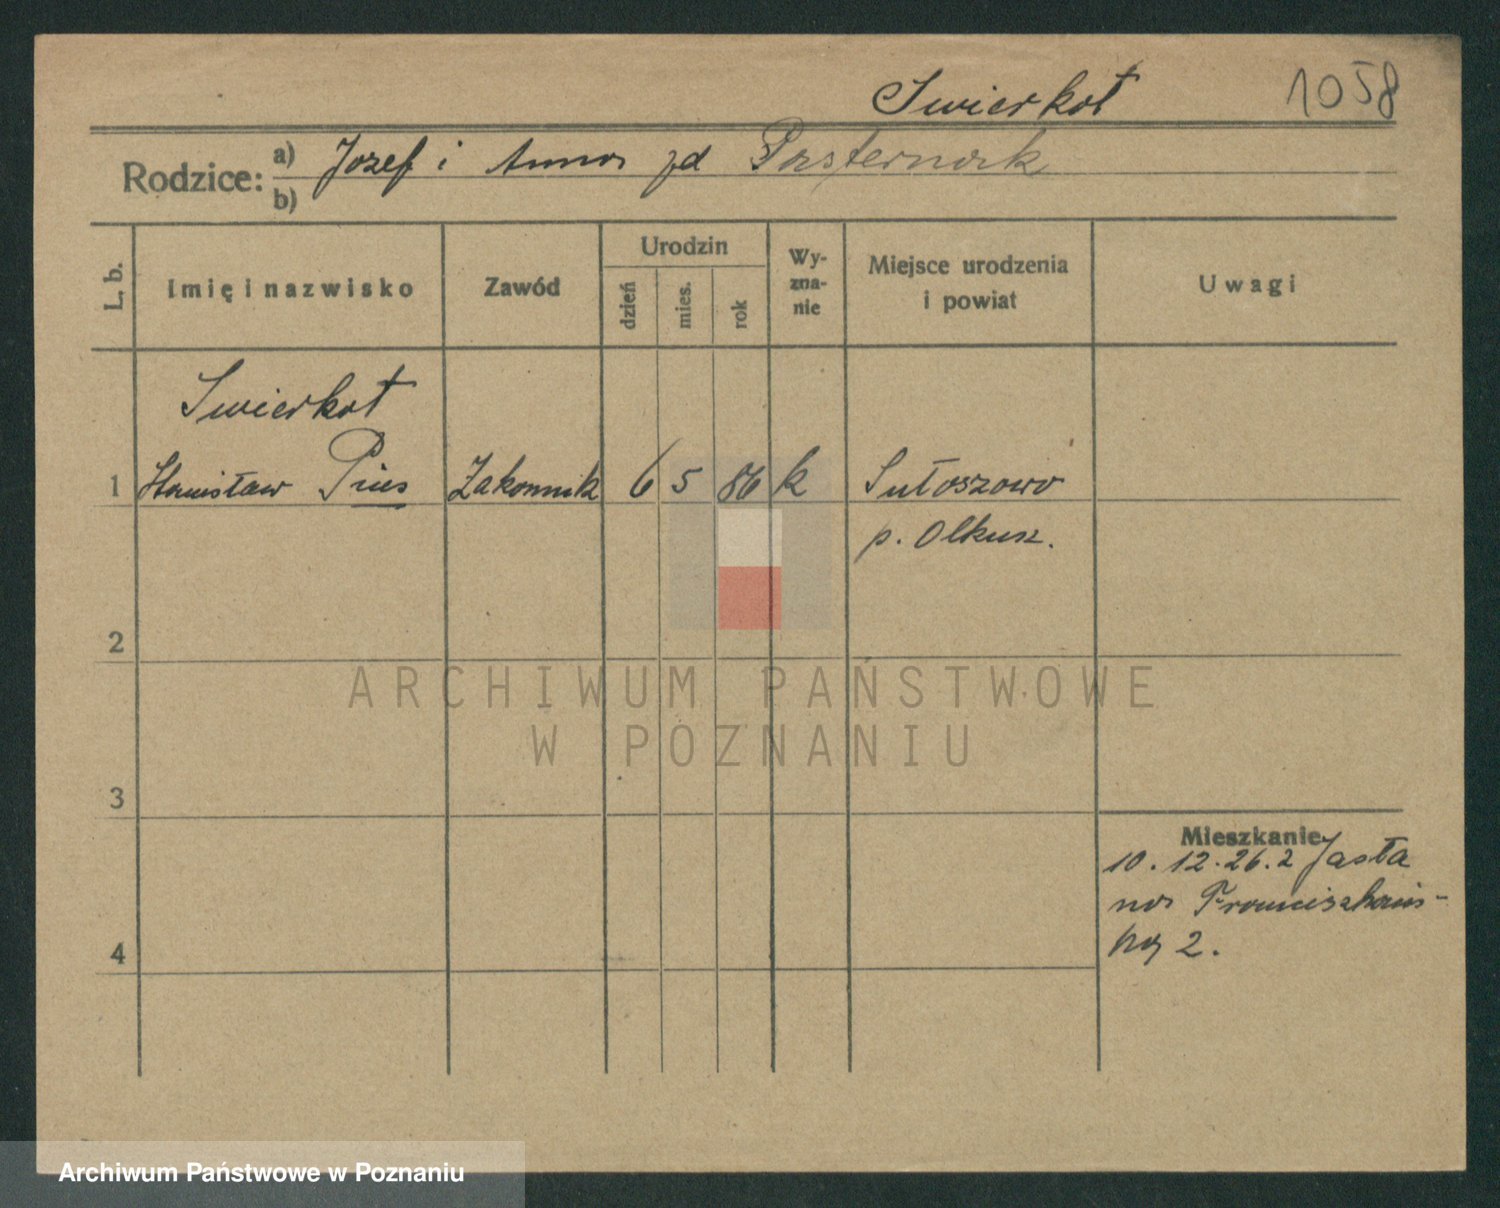 Swierkot 1058
Rodzice: a) Jozef i Anna zd Pasternak
b)
L. b. Imię i nazwisko Zawód Urodzin dzień mies. rok Wy-zna-nie Miejsce urodzenia i powiat Uwagi
Swierkot
1 Stanisław Pius Zakonnik 6 5 86 k Sułoszowo
p. Olkusz.
2
ARCHIWUM PAŃSTWOWE
W POZNANIU
3
Mieszkanie
10.12.26. z Jasła
na Franciszkańs-
ką 2.
4
Archiwum Państwowe w Poznaniu